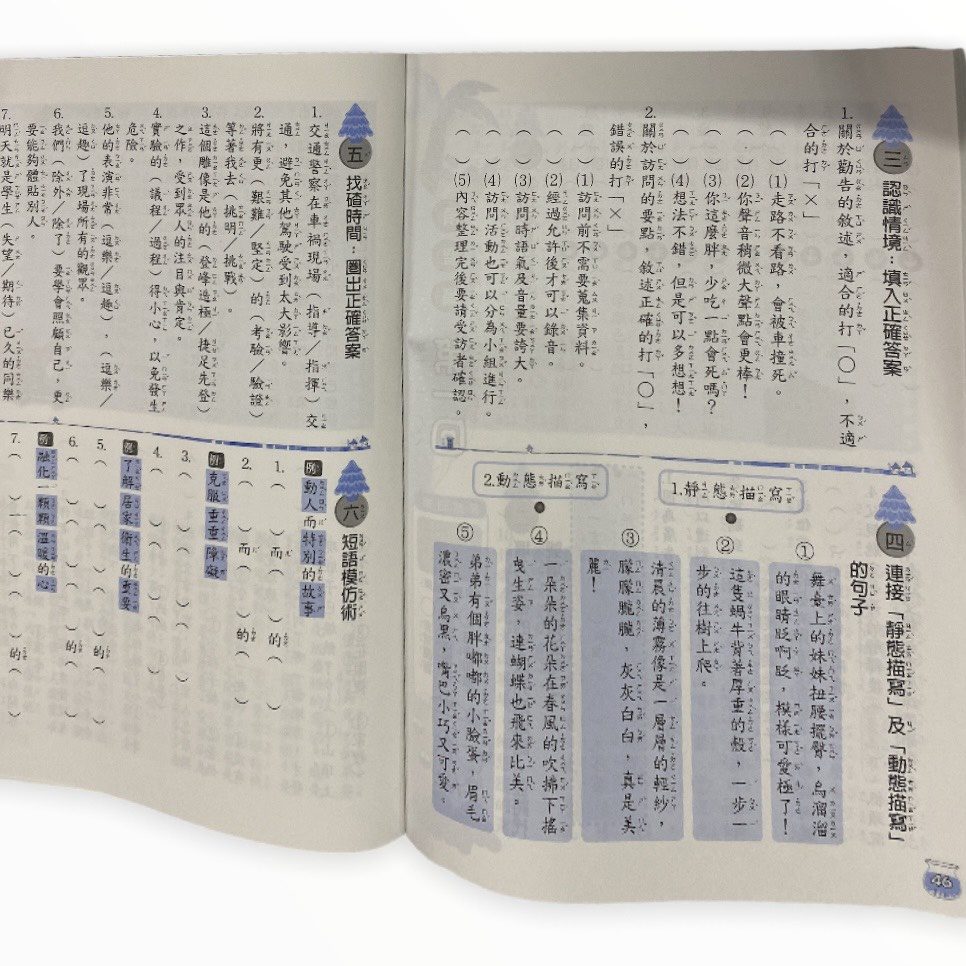 三 認識情境：填入正確答案
1. 關於勸告的敘述，適合的打「○」，不適
合的打「×」
（ ）(1)走路不看路，會被車撞死。
（ ）(2)你聲音稍微大聲點會更棒！
（ ）(3)你這麼胖，少吃一點會死嗎？
（ ）(4)想法不錯，但是可以多想想！
2. 關於訪問的要點，敘述正確的打「○」，
錯誤的打「×」
（ ）(1)訪問前不需要蒐集資料。
（ ）(2)經過允許後才可以錄音。
（ ）(3)訪問時語氣及音量要誇大。
（ ）(4)訪問活動也可以分為小組進行。
（ ）(5)內容整理完後要請受訪者確認。
四 連接「靜態描寫」及「動態描寫」
的句子
1.靜態描寫
2.動態描寫
①
舞臺上的妹妹扭腰擺臀，烏溜溜
的眼睛眨啊眨，模樣可愛極了！
②
這隻蝸牛背著厚重的殼，一步一
步的往樹上爬。
③
清晨的薄霧像是一層層的輕紗，
朦朦朧朧，灰灰白白，真是美
麗！
④
一朵朵的花朵在春風的吹拂下搖
曳生姿，連蝴蝶也飛來比美。
⑤
弟弟有個胖嘟嘟的小臉蛋，眉毛
濃密又烏黑，嘴巴小巧又可愛。
46
五 找碴時間：圈出正確答案
1. 交通警察在車禍現場（指導／指揮）交
通，避免其他駕駛受到太大影響。
2. 將有更（艱難／堅定）的（考驗／驗證）
等著我去（挑明／挑戰）。
3. 這個雕像是他的（登峰造極／捷足先登）
之作，受到眾人的注目與肯定。
4. 實驗的（議程／過程）得小心，以免發生
危險。
5. 他的表演非常（逗樂／逗趣），（逗樂／
逗趣）了現場所有的觀眾。
6. 我們（除外／除了）要學會照顧自己，更
要能夠體貼別人。
7. 明天就是學生（失望／期待）已久的同樂
六 短語模仿術
例 動人而特別的故事
1.（ ）而（ ）的（ ）
2.（ ）而（ ）的（ ）
例 克服重重障礙
3.（ ）（ ）（ ）
4.（ ）（ ）（ ）
例 了解居家衛生的重要
5.（ ）（ ）的（ ）
6.（ ）（ ）的（ ）
例 融化一顆顆溫暖的心
7.（ ）一（ ）的（ ）